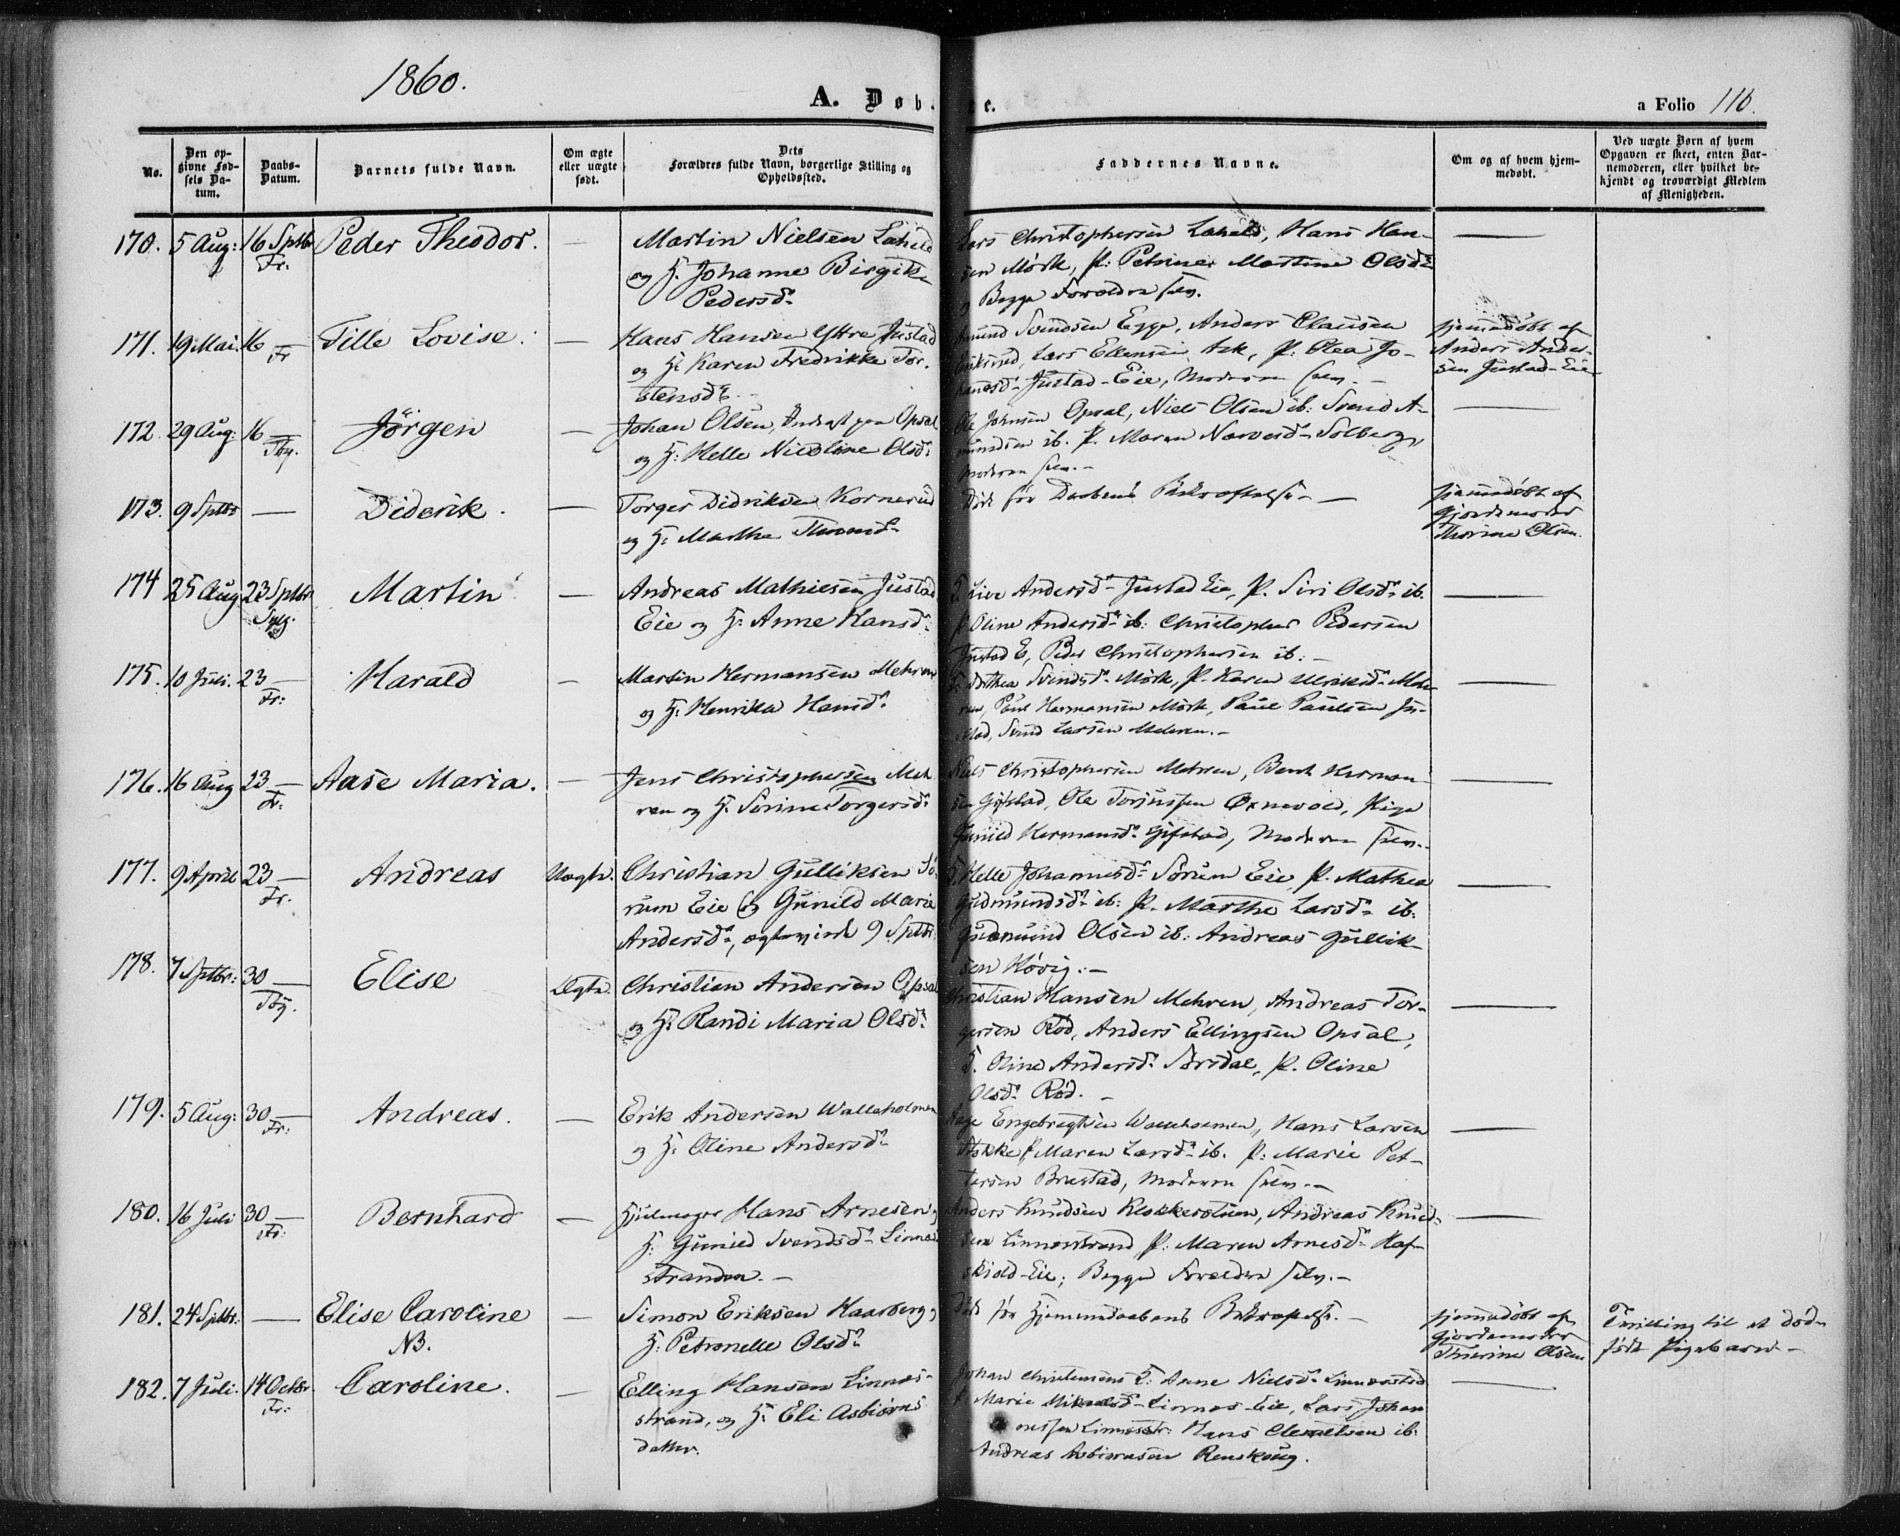 1860.
A. Døb
e.
a Folio 116.
No.
Den opgivne Fødsels Datum.
Daabs-Datum.
Barnets fulde Navn.
Om ægte eller uægte født.
Dets Forældres fulde Navn, borgerlige Stilling og Opholdssted.
Faddernes Navne.
Om og af hvem hjemmedøbt.
Ved uægte Børn af hvem Opgaven er skeet, enten Barnemoderen, eller hvilket bekjendt og troværdigt Medlem af Menigheden.
170. 5 Aug: 16 Sptbr Fr. Peder Theodor. — Martin Nielsen
og H. Johanne Birgitte
Pedersd.
Lars Christophersen, Hans Han-
sen Mörk, P: Martine Olsd:
og Begge Forældre selv.
171. 19 Mai 16 — Fr Tille Lovise. — Hans Hansen Ystre Justad
og H: Karen Fredrikke Tor-
stensd.
Amund Svendsen Egge, Anders Clausen
Lars Ellensen Ask, P: Olea Jo-
hansd. Justad-Eie, Moderen selv. —
hjemmedøbt af
Anders Ander-
sen Justad-Eie
172. 29 Aug: 16 — Tby. Jörgen — Johan Olsen, Inderst paa Opsal
og H: Helle Nicoline Olsd:
Ole Johnsen Opsal, Niels Olsen ib: Svend A-
mundsen ib. P. Maren Narvesd. Solberg,
Moderen selv. —
173. 9 Sptbr — Diderik. — Torger Didriksen Kornerud
og H: Marthe
Död för Daabens Bekræftelse —
hjemmedøbt af
Gjordemoder
Thorine Olsen.
174 25 Aug 23 Sptbr Martin — Andreas Mathiesen Justad
Eie og H: Anne Hansd.
Live Andersd. Justad Eie, P. Siri Olsd. ib.
P. Oline Andersd. ib: Christopher Pedersen
Justad E, Peder Christophersen ib: —
175. 10 Juli. 23 — Fr: Harald — Martin Hermansen Mehren
og H: Henrikka Hansd:
Dorthea Svendsd. Mörk, P. Karen Ulriksd. Meh-
ren, Paul Hermansen Mörk, Paul Paulsen Ju-
stad, Svend Larsen Mehren. —
176. 16 Aug 23 — Fr: Aase Maria. — Jens Christophersen Meh-
ren og H: Sörine Torgersd:
Niels Christophersen Mehren, Bent Herman-
sen Gifstad, Ole Torjussen Öxnevold, Pige
Gunild Hermansd. Gifstad, Moderen selv.
177. 9 April 23 — Fr. Andreas Uægte. Christian Gulliksen Sö-
rum Eie og Gunild Marie
Andersd., ægteviede 9 Sptbr
Helle Johannesd. Sörum Eie P. Mathea
Gudmundsd. ib: P. Marthe Larsd. ib.
Gudmund Olsen ib: Andreas Gullik-
sen Hövig. —
178. 7 Sptbr: 30 — Tby. Elise Ægte. Christian Andersen Opsal
og H: Randi Maria Olsd:
Christian Hansen Mehren, Andreas Tor-
gersen Röd, Anders Ellingsen Opsal,
H. Oline Andersd. Sörsdal, P. Oline
Olsd. Röd. —
179. 5 Aug: 30 — Fr: Andreas. — Erik Andersen Walleholmen
og H: Oline Andersd.
Aage Engebregtsen Walleholmen, Hans Larsen
Stokke, P Maren Larsd. ib. P: Marie Pet-
tersen Brustad, Moderen selv. —
180. 16 Juli 30 — Fr: Bernhard — Hjulmager Hans Arnesen og
H: Gunild Svendsd. Linnes-
stranden. —
Anders Knudsen Klokkerstuen, Andreas Knud-
sen Linnesstrand P: Maren Arnesd. Haf-
skiold-Eie; Begge Forældre selv. —
181. 24 Sptbr. — Elise Caroline
NB. — Simon Eriksen Haarberg og
H: Petronelle Olsd.
Död för Hjemmedaabens Bekræftelse. —
hjemmedøbt af
Gjordemoder
Thorine Olsen
Tvilling til et död-
födt Pigebarn —
182. 7 Juli. 14 Octbr Fr: Caroline. — Elling Hansen Linnes-
strand, og H: Eli Asbiörns-
datter.
Johan Christensens H: Anne Nielsd.
Marie Linnes-Eie, Lars Johan-
nessen Linnesstr: Hans ib:
Andreas Asbiörnsen Renskoug.